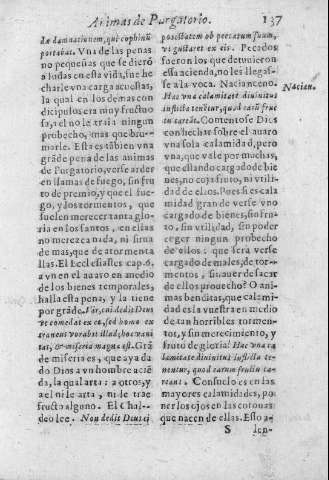 Animas de Purgatorio. 137
dæ damnationem, quē cophinū
portabat. Vna de las penas
no pequeñas que se dierō
a Iudas en esta vida, fue he
charle vna carga acuestas,
la qual en los demas con
dicipulos era muy fructuo
sa, i el no le traia ningun
probecho, mas que bru-
marle. Esta es tābien vna
grāde pena de las animas
de Purgatorio, verse arder
en llamas de fuego, sin fru
to de premio, y que el fue-
go, y los tormentos, que
suelen merecer tanta glo-
ria en los santos, en ellas
no merezca nada, ni sirua
de mas, que de atormenta
llas. El Ecclesiastes cap. 6.
aun en el auaro en medio
de los bienes temporales,
halla esta pena, y la tiene
por grāde. Vir, cui dedit Deus
ut comedat ex eo, sed homo ex
traneus vorabit illud, hoc vani
tas, & miseria magna est. Grā
de miseria es, que aya da
do Dios a vn hombre aciē
da, la qual arta: a otros, y
a el ni le arta, ni le trae
fructa alguno. El Chal-
deo lee. Non dedit Deus ei
potestatem ob peccatum suum,
vt gustaret ex eis. Pecados
fueron los que detuuieron
esta acienda, no les llegas-
se a la voca. Nacianceno.
Nacian.
Hac vna calamitate diuinitus
inflicta tenetur, quod cum fruc
tu careat. Contentose Dios
con hechar sobre el auaro
vna sola calamidad, pero
vna, que vale por muchas,
que estando cargado de bie
nes, no coja fruto, ni vtili-
dad de ellos. Pues si es cala
midad gran de verse vno
cargado de bienes, sin fru-
to, sin vtilidad, sin poder
coger ningun probecho
de ellos: que será verse
cargado de males, de tor-
mentos, sin auer de sacar
de ellos prouecho? O ani-
mas benditas, que calami-
dad es la vuestra en medio
de tan horribles tormen-
tos, y sin merecimiento, y
fruto de gloria! Hac vna ca
lamitate diuinitus inflicta te-
nentur, quod earum fructu ca-
reant. Consuelo es en las
mayores calamidades, po-
ner los ojos en las coronas
que nacen de ellas. Esso a-
S len-